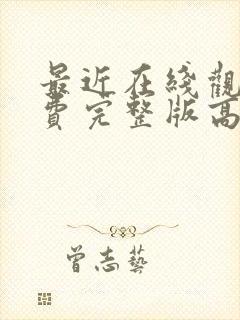 最近在綫觀
費完整版高
曾志藝